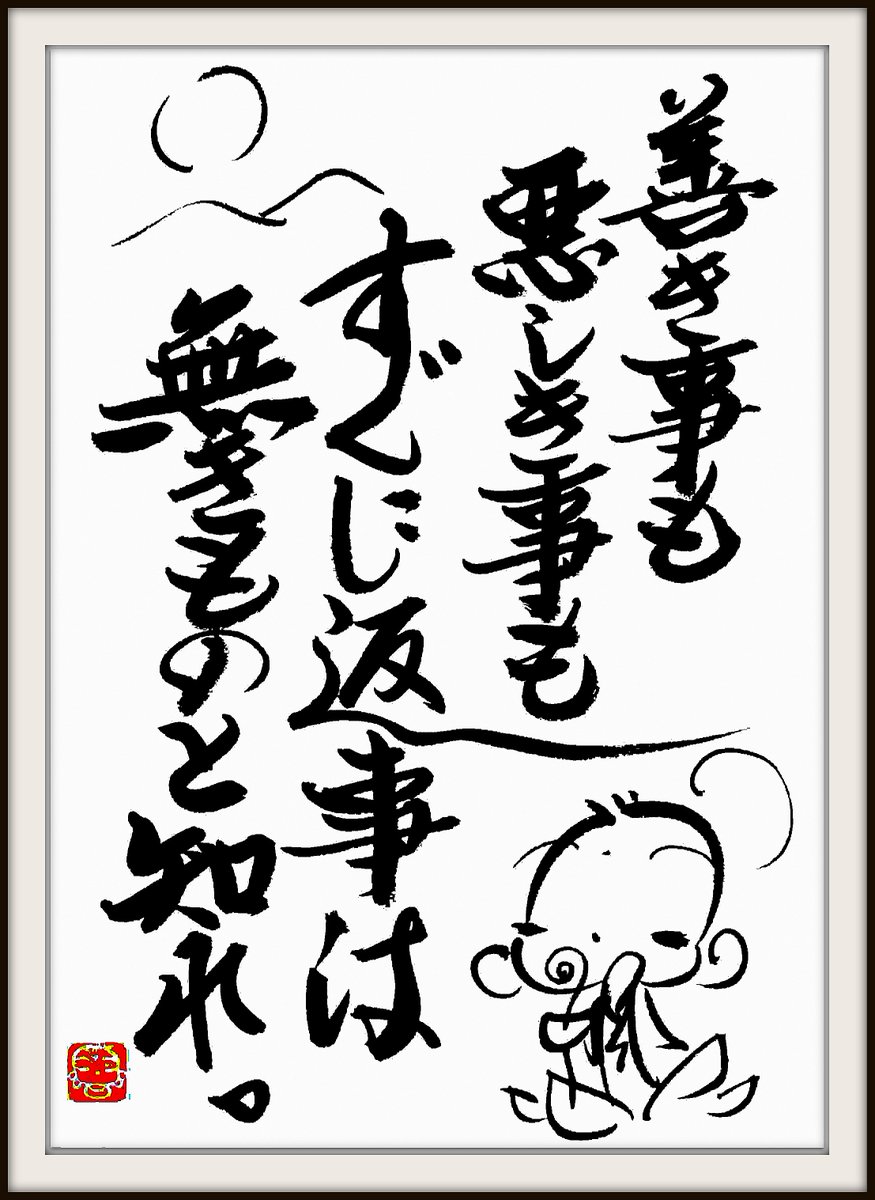 善き事も
悪しき事も
すぐに返事は
無きものと知れ。